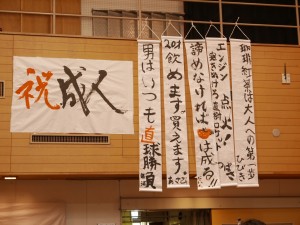 祝成人
珈琲紅茶は大人への第一歩
ひびき
エンジン点火!
つばさ
諦めなければ は成る!!
20才飲めます買えます。
男はいつも直球勝負